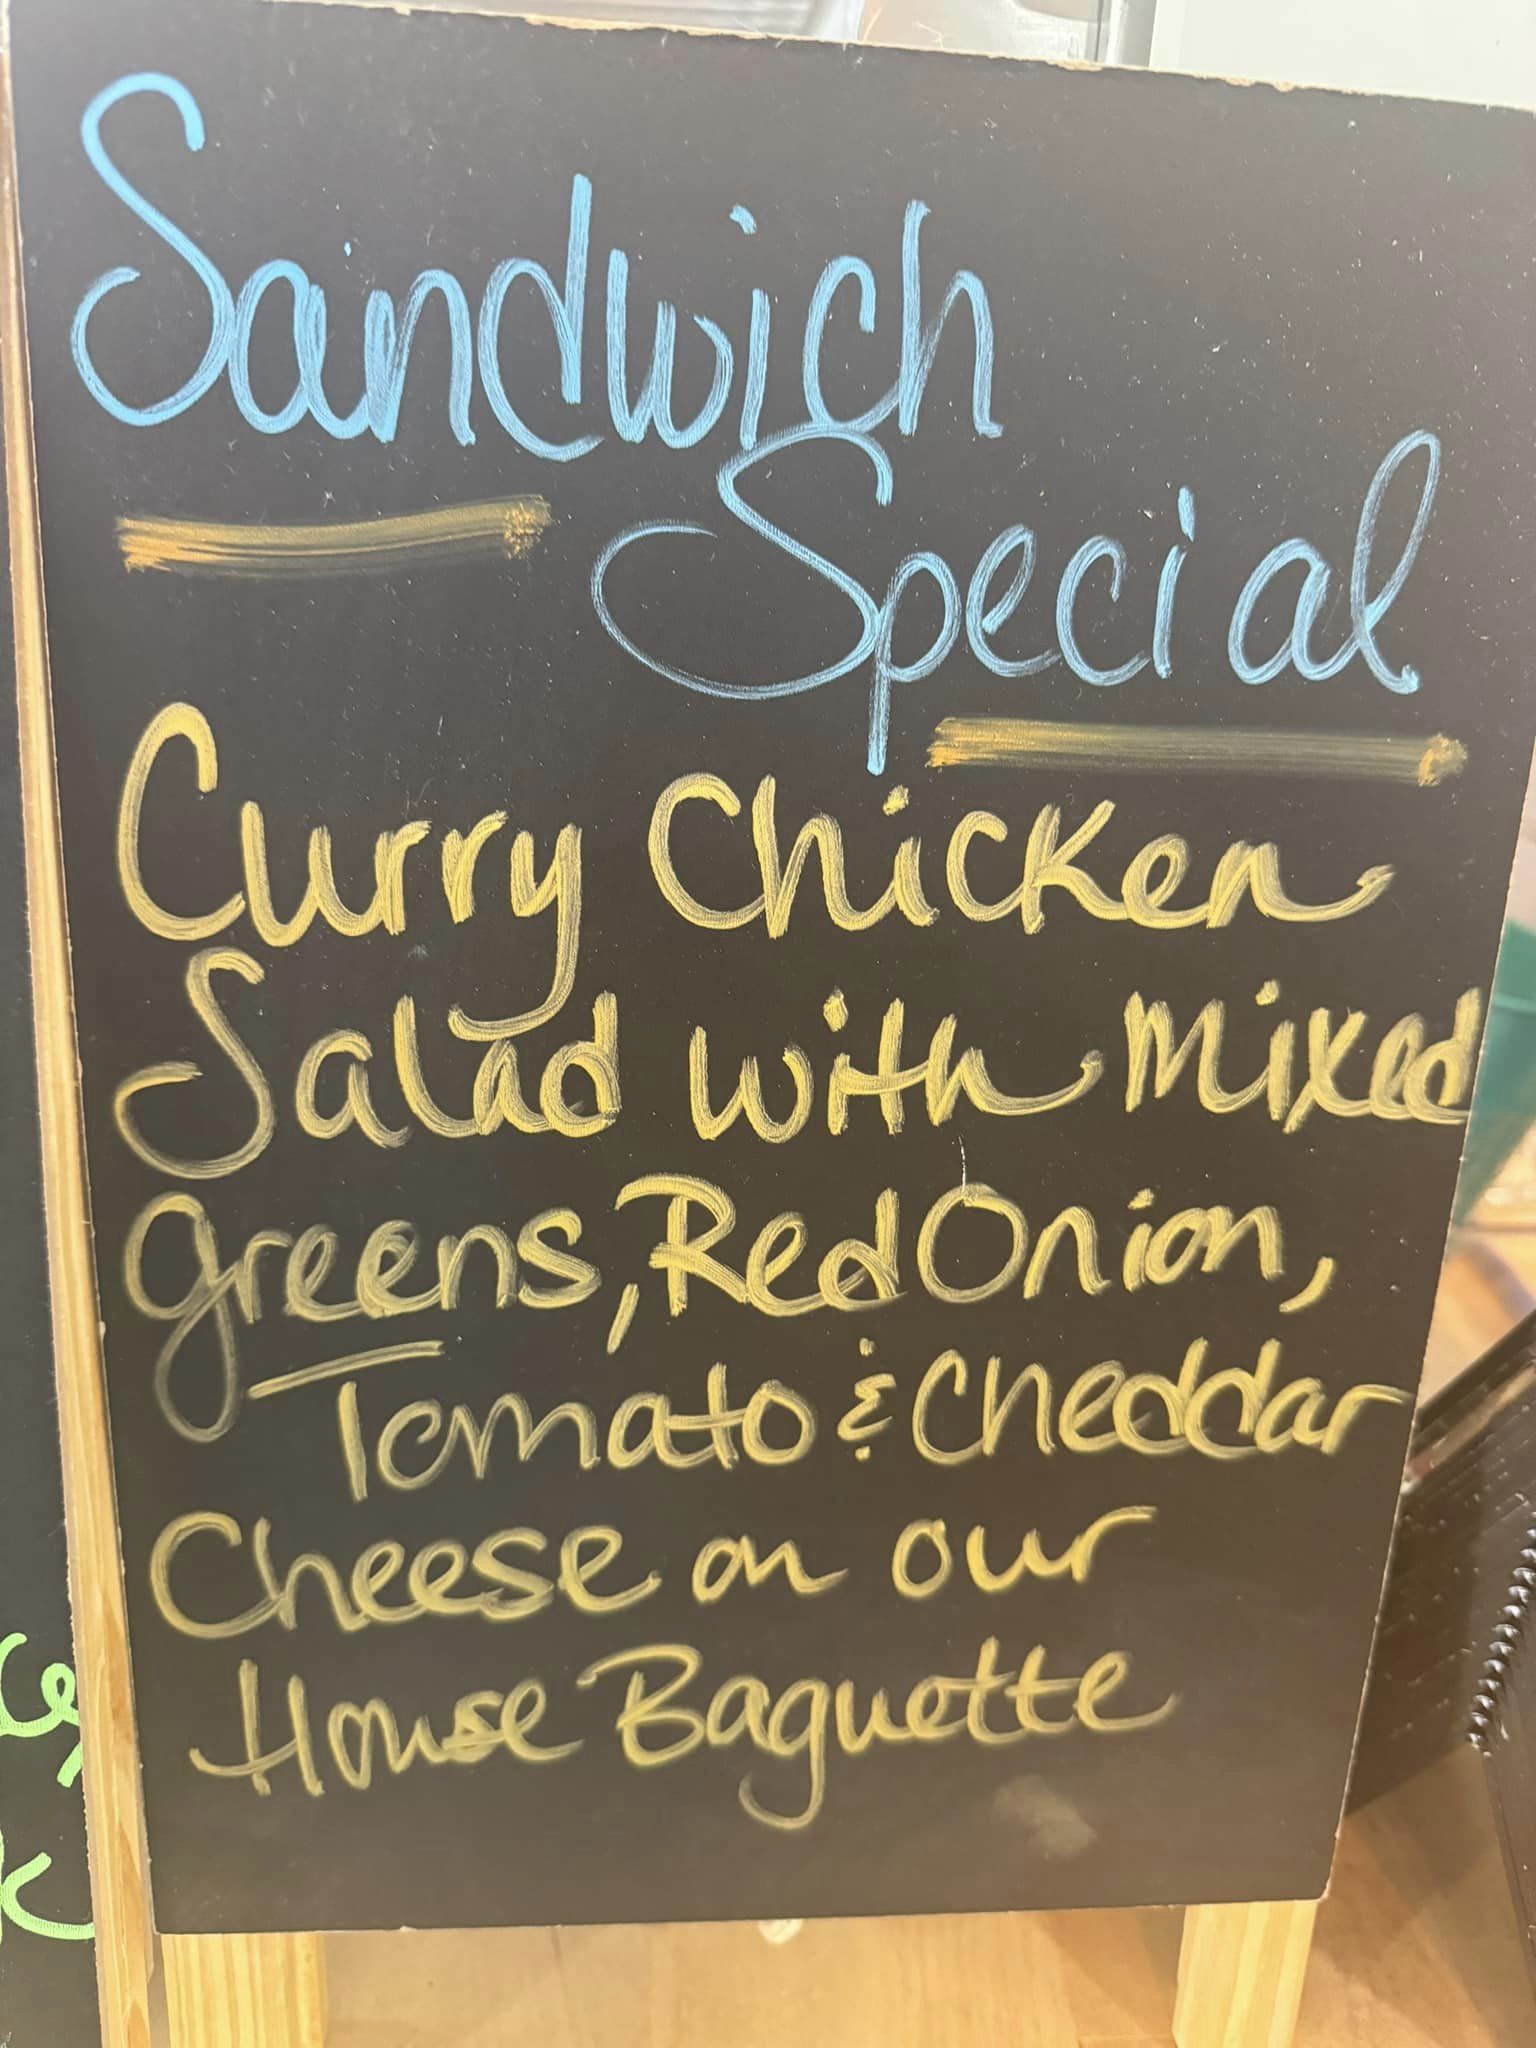 Sandwich
Special
Curry Chicken
Salad with mixed
greens, Red Onion,
Tomato & Cheddar
Cheese on our
House Baguette